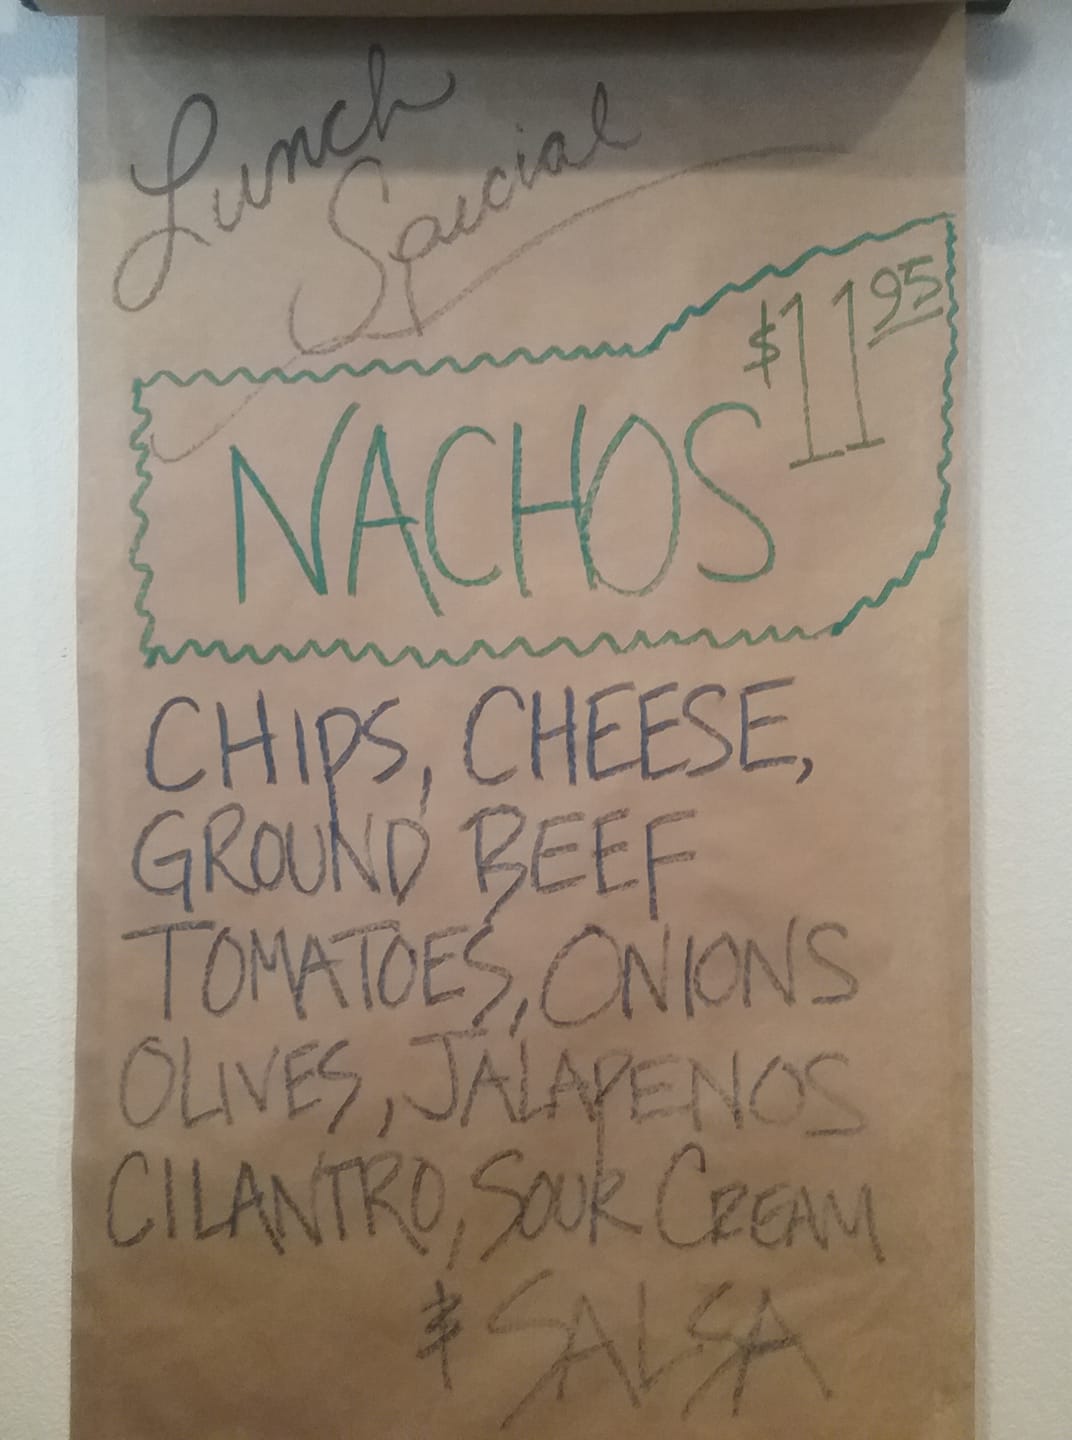 Lunch
Special
$11.95
NACHOS
CHIPS, CHEESE,
GROUND BEEF
TOMATOES, ONIONS
OLIVES, JALAPENOS
CILANTRO, SOUR CREAM
& SALSA